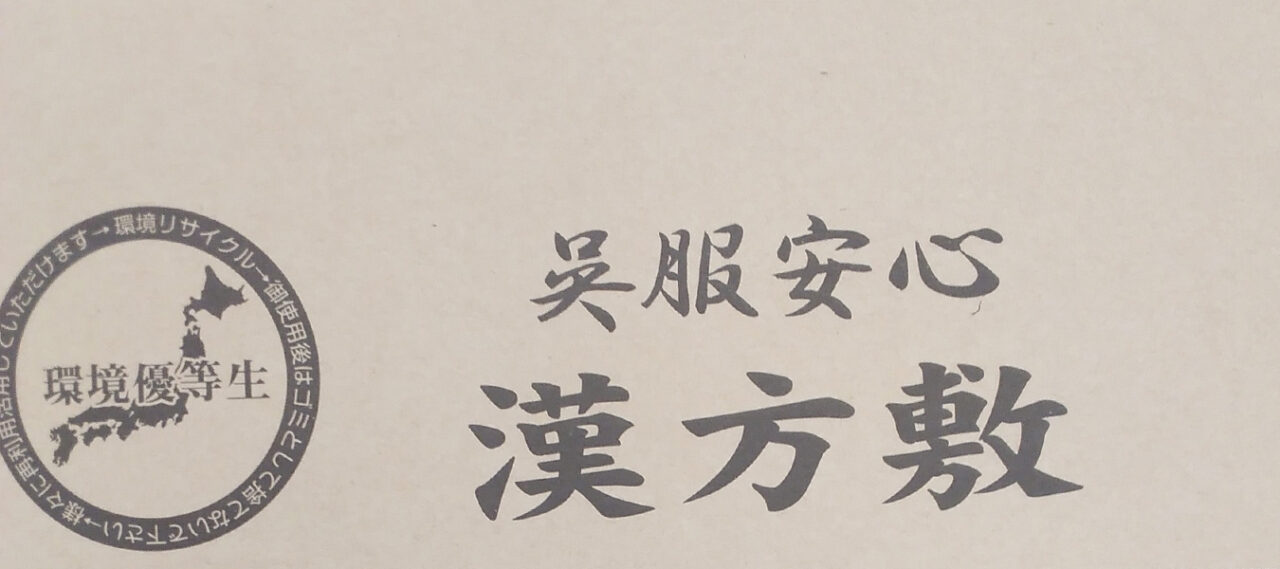 環境リサイクル→御使用後はゴミとして捨てないで下さい→様々に再利用活用していただけます→
環境優等生
呉服安心
漢方敷